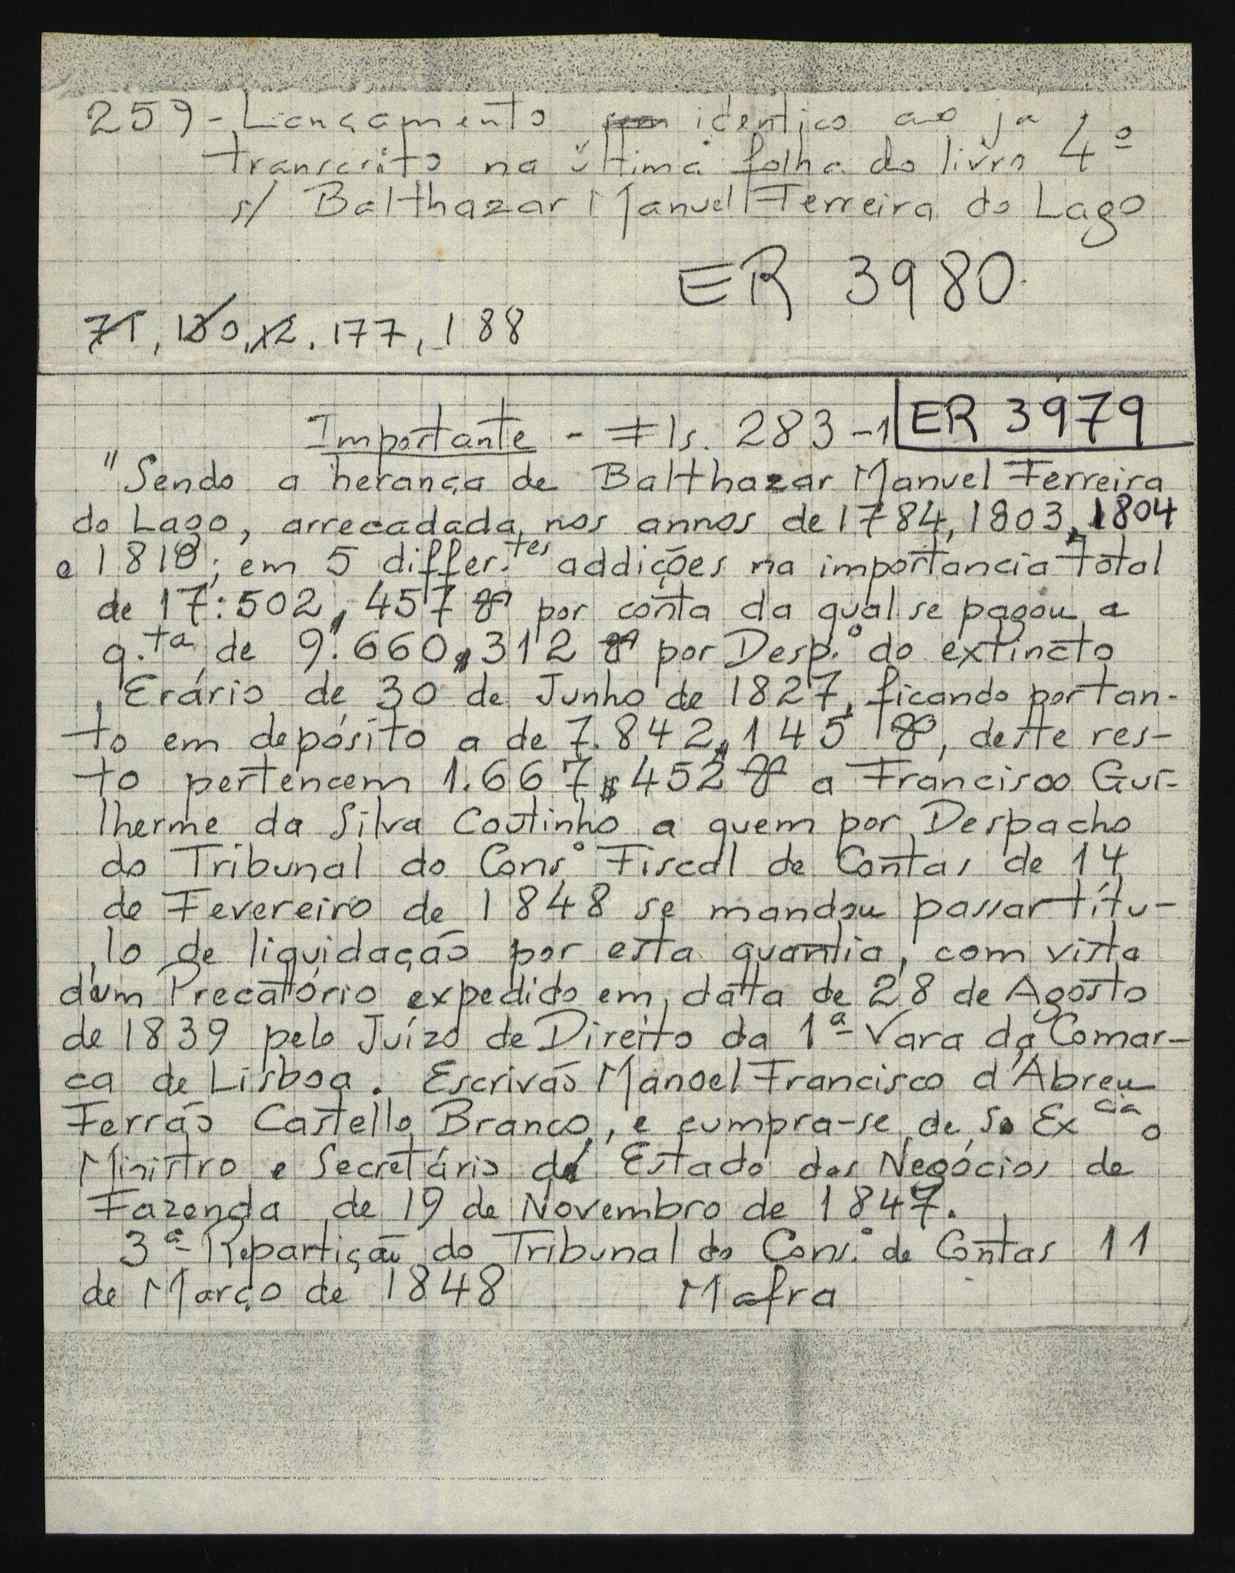 259 - Lançamento identico ao já
transcrito na última folha do livro 4º
s/ Balthazar Manuel Ferreira do Lago
ER 3980
71, 130, 12, 177, 188
Importante - Fls. 283-1 ER 3979
"Sendo a herança de Balthazar Manuel Ferreira
do Lago, arrecadada nos annos de 1784, 1803, 1804
e 1810; em 5 differ.tes addições na importancia total
de 17:502$457 por conta da qual se pagou a
q.ta de 9.660$312 por Desp.º do extincto
Erário de 30 de Junho de 1827, ficando portan-
to em depósito a de 7.842$145, deste res-
to pertencem 1.667$452 a Francisco Gui-
lherme da Silva Coutinho a quem por Despacho
do Tribunal do Cons.º Fiscal de Contas de 14
de Fevereiro de 1848 se mandou passar títu-
lo de liquidação por esta quantia, com vista
dum Precatório expedido em datta de 28 de Agosto
de 1839 pelo Juízo de Direito da 1ª Vara da Comar-
ca de Lisboa. Escrivão Manoel Francisco d'Abreu
Ferrão Castello Branco, e cumpra-se de S. Excia o
Ministro e Secretário de Estado dos Negócios de
Fazenda de 19 de Novembro de 1847.
3ª Repartição do Tribunal do Cons.º de Contas 11
de Março de 1848 Mafra